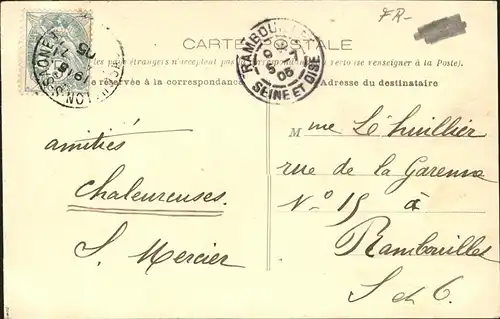 FR-
CARTE POSTALE
les pays étrangers n'acceptent pas
(se renseigner à la Poste).
réservée à la correspondance
Adresse du destinataire
RAMBOUILLET
05
SEINE ET OISE
amitiés
chaleureuses.
S. Mercier
Mme Lhuillier
rue de la Garenne
N-o 15 à
Rambouillet
S et O.